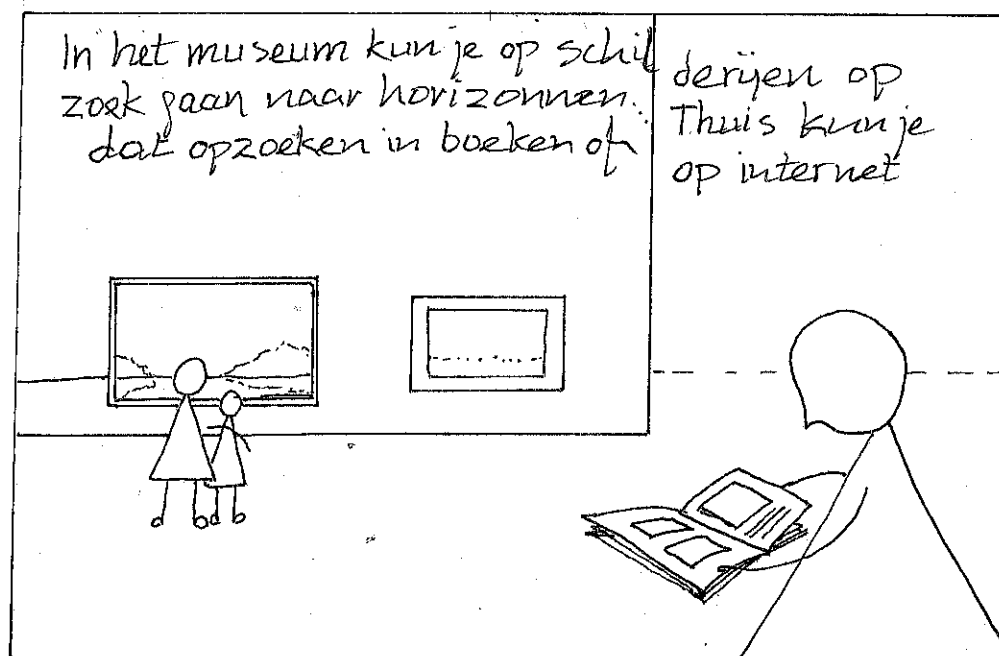 In het museum kun je op schilderijen op
zoek gaan naar horizonnen. Thuis kun je
dat opzoeken in boeken of op internet